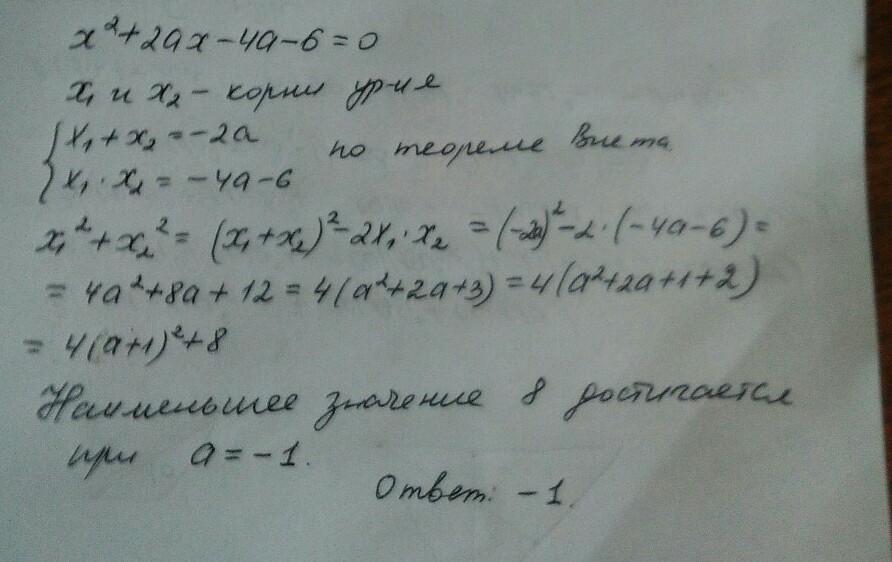 x²+2ax-4a-6=0
x₁ и x₂ - корни ур-ия
{ x₁+x₂=-2a по теореме Виета
{ x₁·x₂=-4a-6
x₁²+x₂²= (x₁+x₂)²-2x₁·x₂ =(-2a)²-2·(-4a-6)=
= 4a²+8a+12=4(a²+2a+3)=4(a²+2a+1+2)
= 4(a+1)²+8
Наименьшее значение 8 достигается
при a=-1.
Ответ: -1.